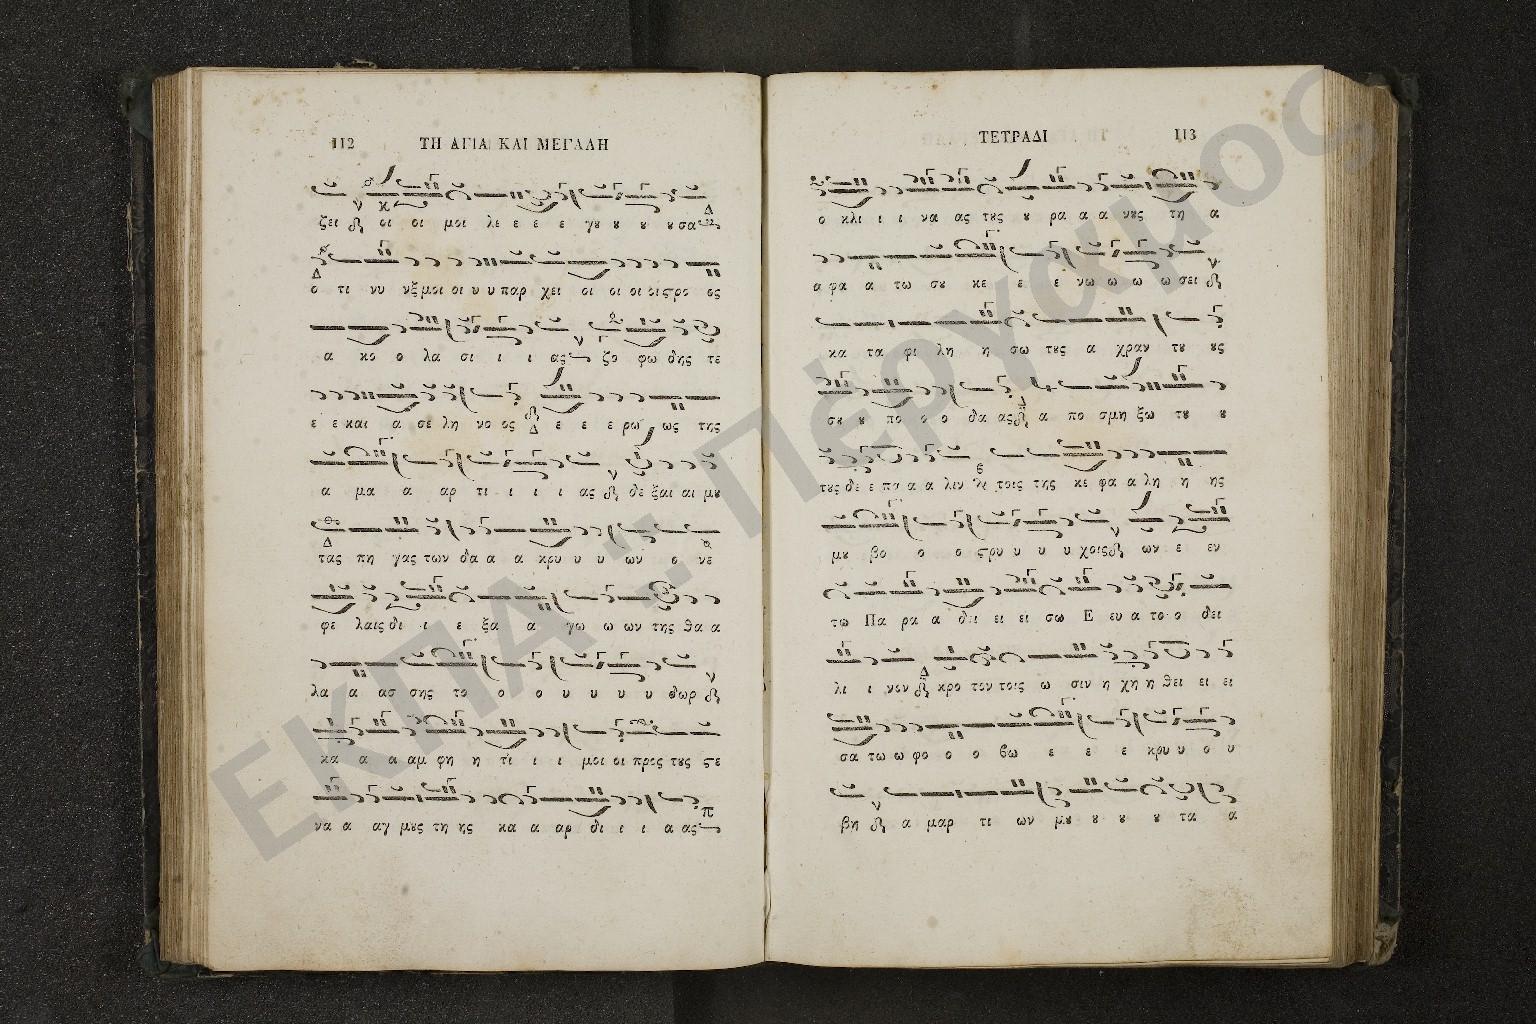 112 ΤΗ ΑΓΙΑ ΚΑΙ ΜΕΓΑΛΗ
ζει οι οι μοι λε ε ε ε γȣ ȣ ȣ ȣ σα
ο τι νυ υξ μοι οι υ υ παρ χει οι οι οι οις ρο ος
α κο ο λα σι ι ι ας ζο φω δης τε
ε ε και α σε λη νο ος ε ε ε ρω ως της
α μα α αρ τι ι ι ι ας δε ξαι αι μȣ
τας πη γας των δα α α κρυ υ υ ων ο νε
φε λαις δι ι ε ξα α γω ω ων της θα α
λα α ασ σης το ο ο υ υ υ υ δωρ
κα α α αμ φη η τι ι ι μοι οι προς τȣς ϛε
να α αγ μȣς τη ης κα α αρ δι ι ι α ας
ΤΕΤΡΑΔΙ 113
ο κλι ι ι να ας τȣς ȣ ρα α α νȣς τη α
α φα α τω σȣ κε ε ε νω ω ω ω σει
κα τα φι λη η σω τȣς α χραν τȣ ȣς
σȣ ȣ πο ο ο δα ας α πο σμη ξω τȣ ȣ
τȣς δε ε πα α α λιν τοις της κε φα α λη η ης
μȣ βο ο ο ϛρυ υ υ υ χοις ων ε εν
τω Πα ρα α δει ει ει σω Ε ευ α το ο δει
λι ι νον κρο τον τοις ω σιν η χη η θει ει ει
σα τω ω φο ο ο βω ε ε ε κρυ υ ο υ
βη α μαρ τι ων μȣ ȣ ȣ ȣ τα α
ΕΚΠΑ - Πέργαμος